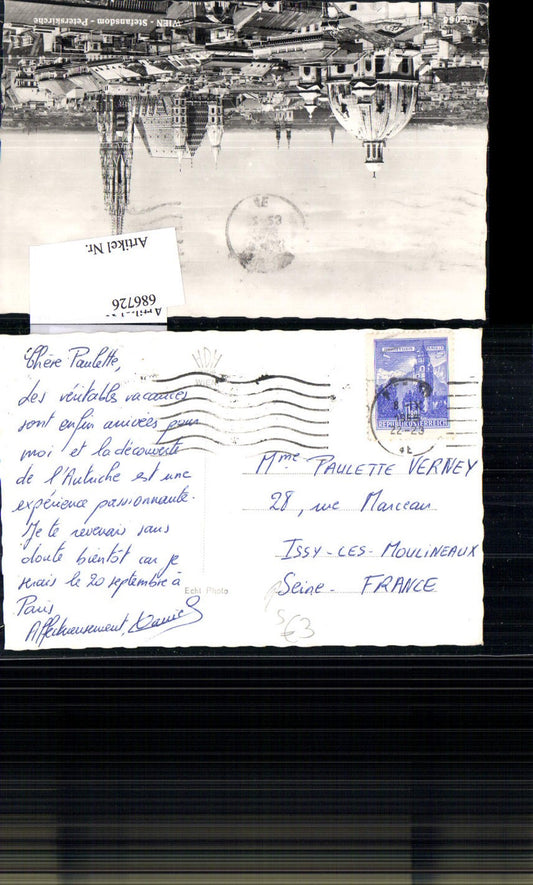 WIEN - Stefansdom - Peterskirche
Artikel Nr.
686726
Chère Paulette,
Les véritables vacances
sont enfin arrivées pour
moi et la découverte
de l'Autriche est une
expérience passionnante.
Je te reverrais sans
doute bientôt car je
serais le 20 septembre à
Paris
Affectueusement,
Echt Photo
REPUBLIK ÖSTERREICH
22-23
Mme PAULETTE VERNEY
28, rue Marceau
ISSY-LES-MOULINEAUX
Seine - FRANCE